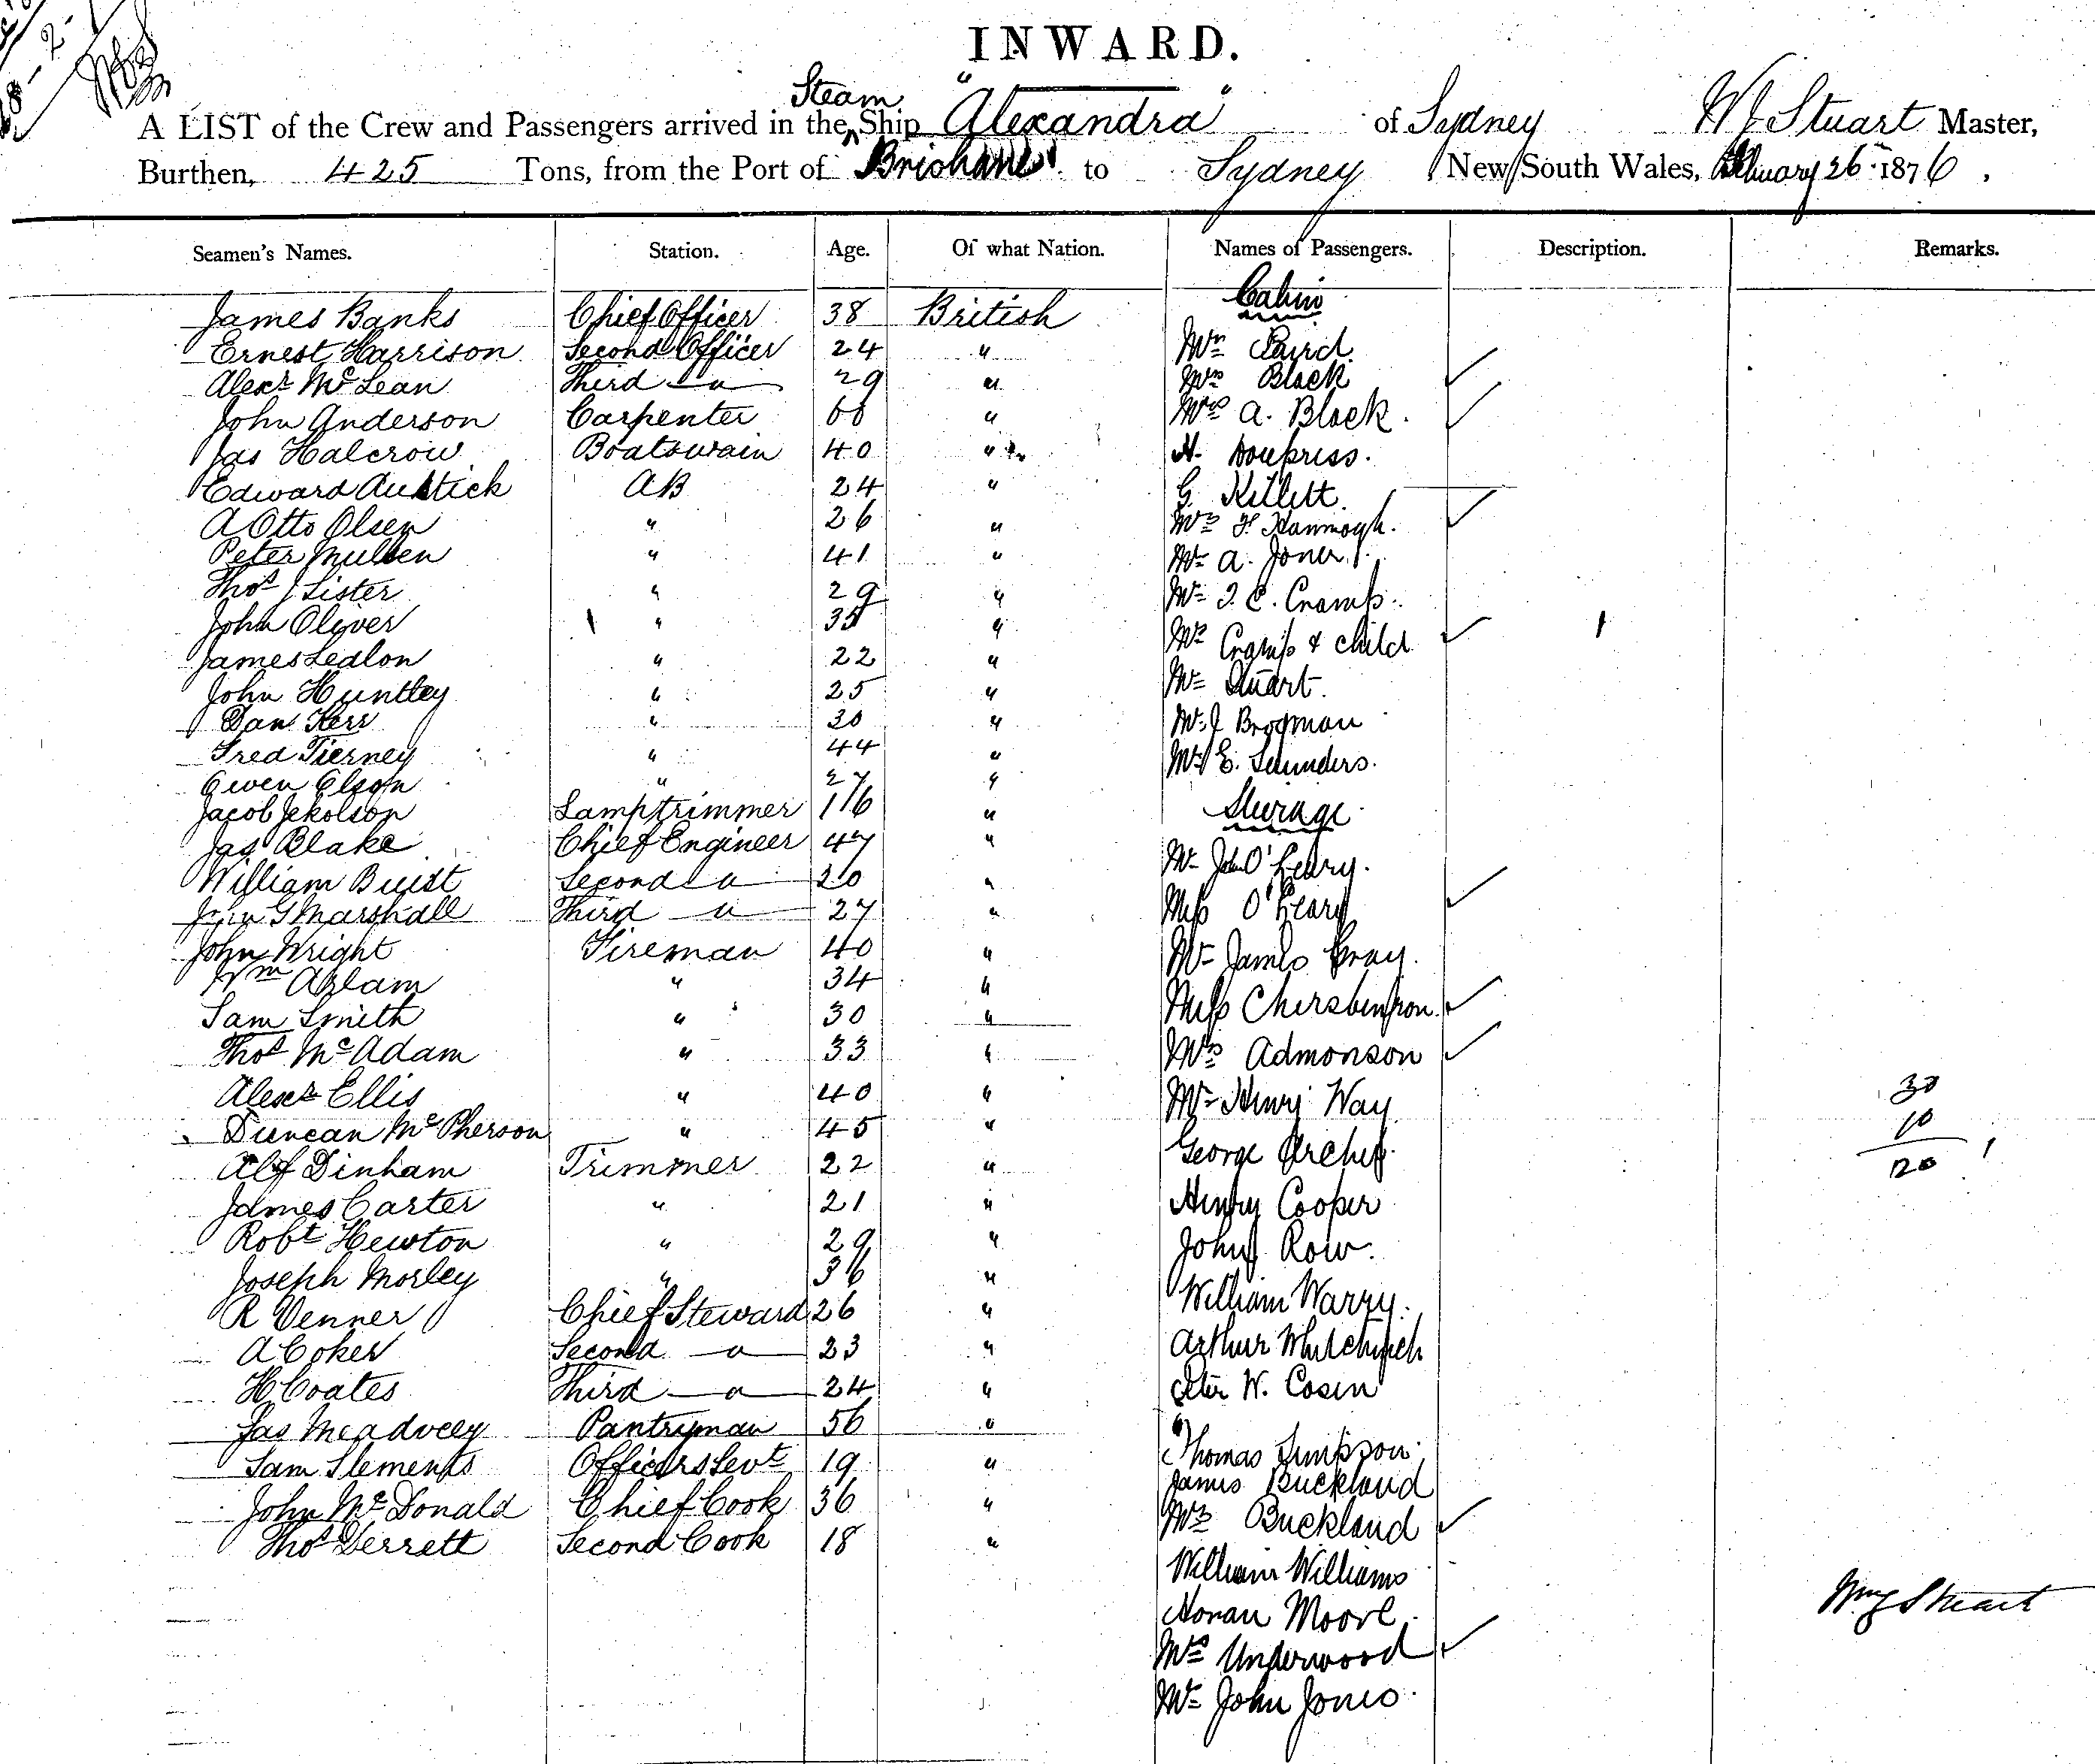 INWARD.
A LIST of the Crew and Passengers arrived in the Steam Ship "Alexandra" of Sydney W J Stuart Master,
Burthen, 425 Tons, from the Port of Brisbane to Sydney New South Wales, February 26 1876.
Seamen's Names. Station. Age. Of what Nation. Names of Passengers. Description. Remarks.
Cabin
James Banks Chief Officer 38 British Mr Baird
Ernest Harrison Second Officer 24 "
Alexr McLean Third " 29 " Mrs Black
John Anderson Carpenter 60 " Mrs A. Black.
Jas Halcrow Boatswain 40 " H.
Edward Austick AB 24 " G Kellett
A Otto Olsen " 26 " Mrs F.
Peter Mullen " 41 " Mr A. Jones
Thos J Lister " 29 " Mr T. C. Cramp.
John Oliver " 35 " Mrs Cramp & child
James Ledlon " 22 "
John Huntley " 25 " Mr Stuart.
Dan Kerr " 30 " Mr J Brogman
Fred Tierney " 44 " Mr E. Saunders.
Owen Olson " 27 "
Jacob Jekolson Lamptrimmer 16 " Steerage
Jas Blake Chief Engineer 47 " Mr John O'Leary.
William Buist Second " 20 " Miss O'Leary
John G Marshall Third " 27 "
John Wright Fireman 40 " Mr James Gray.
Wm Aslam " 34 "
Sam Smith " 30 " Miss
Thos McAdam " 33 " Mrs Admonson
Alexr Ellis " 40 " Mr Henry Way 30
Duncan McPherson " 45 " George Archer. 10
Alf Dinham Trimmer 22 " 120
James Carter " 21 " Henry Cooper
Robt Hewton " 29 " John Row.
Joseph Morley " 36 "
R Venner Chief Steward 26 " William Warry.
A Coker Second " 23 " Arthur Whitchurch
H Coates Third " 24 " Peter W. Cosen
Jas Meadvcey Pantryman 56 "
Sam Slements Officers Sevt 19 " Thomas Simpson
John McDonald Chief Cook 36 " James Buckland
Thos Derrett Second Cook 18 " Mrs Buckland
William Williams
Horan Moore.
Wm J Stuart
Mrs Underwood
Mr John Jones.